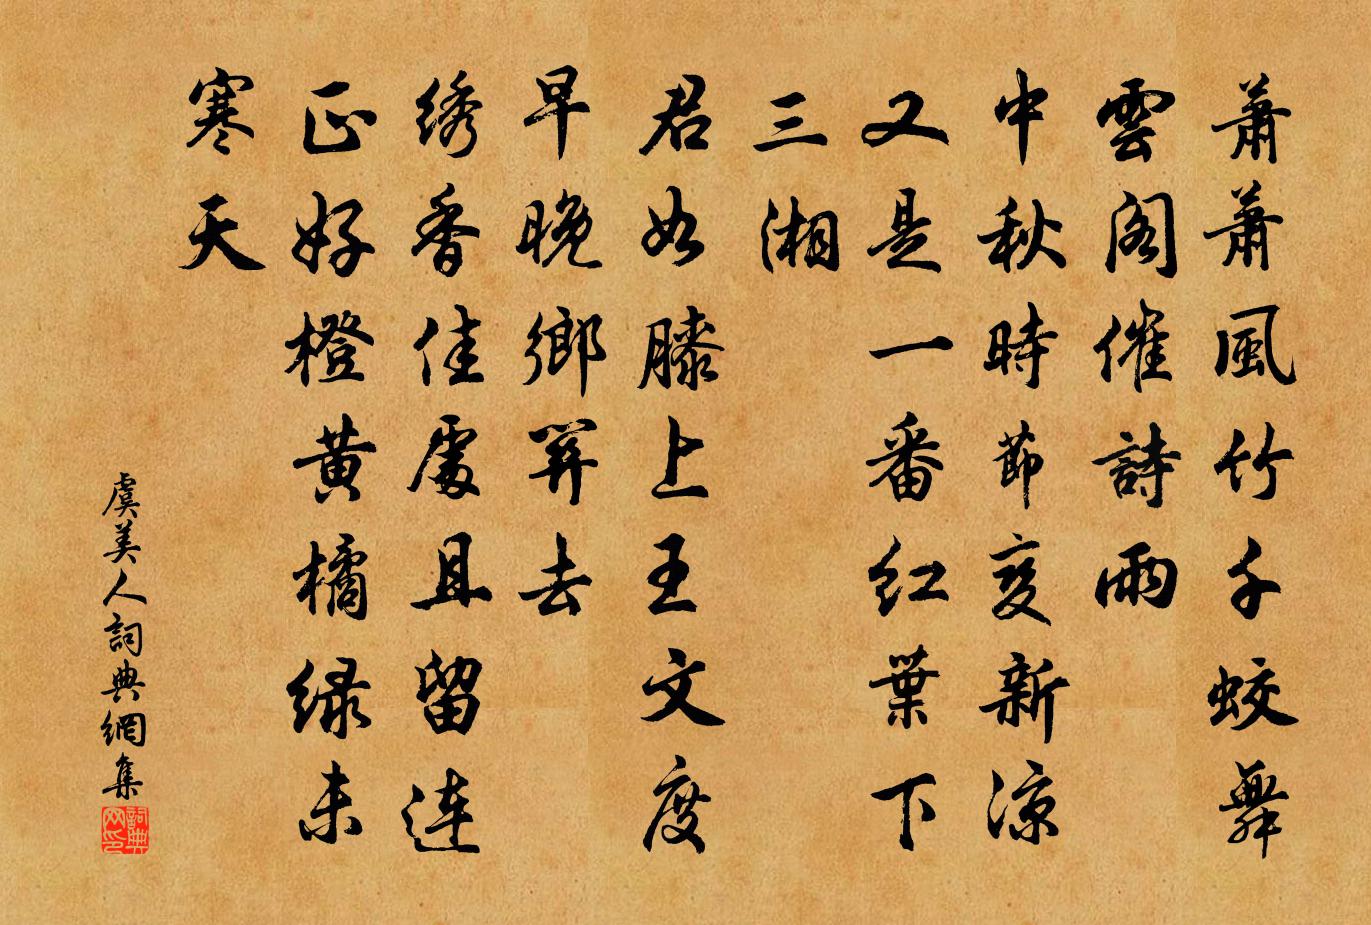 蕭蕭風竹千蛟舞
雲閣催詩雨
中秋時節變新涼
又是一番紅葉下
三湘
君如膝上王文度
早晚鄉關去
绣香佳處且留連
正好橙黃橘绿未
寒天
虞美人詞典網集
詞典网印